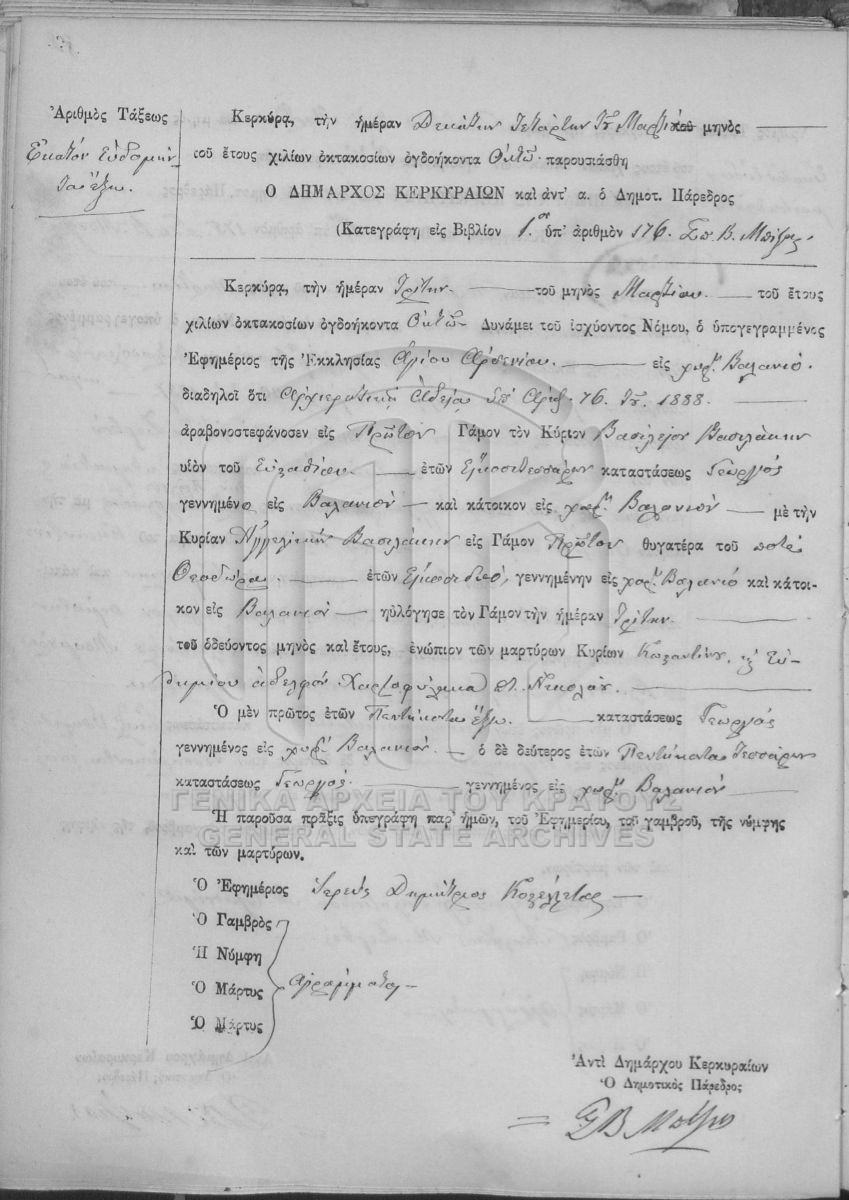 Ἀριθμὸς Τάξεως
Ἑκατόν
Κερκύρα, τὴν ἡμέραν Δεκάτην τετάρτην τοῦ Μαρτίου μηνὸς
τοῦ ἔτους χιλίων ὀκτακοσίων ὀγδοήκοντα Ὀκτώ παρουσιάσθη
Ο ΔΗΜΑΡΧΟΣ ΚΕΡΚΥΡΑΙΩΝ καὶ ἀντ' α. ὁ Δημοτ. Πάρεδρος
(Κατεγράφη εἰς Βιβλίον 1. ὑπ' ἀριθμὸν 176.
Κερκύρα, τὴν ἡμέραν τρίτην τοῦ μηνὸς Μαρτίου τοῦ ἔτους
χιλίων ὀκτακοσίων ὀγδοήκοντα Ὀκτώ Δυνάμει τοῦ ἰσχύοντος Νόμου, ὁ ὑπογεγραμμένος
Ἐφημέριος τῆς Ἐκκλησίας Ἁγίου Ἀρσενίου εἰς χωρ. Βαλανιό.
διαδηλοῖ ὅτι Ἀρχιερατική Ἀδείᾳ ὑπ' Ἀριθ. 76. τοῦ 1888.
ἀραβονοστεφάνοσεν εἰς Πρῶτον Γάμον τὸν Κύριον Βασίλειον Βασιλάκην
υἱὸν τοῦ Εὐσταθίου ἐτῶν Εἰκοσιτεσσάρων καταστάσεως Γεωργός
γεννημένο εἰς Βαλανιόν καὶ κάτοικον εἰς χωρ. Βαλανιόν μὲ τὴν
Κυρίαν Ἀγγελικήν Βασιλάκην εἰς Γάμον Πρῶτον θυγατέρα τοῦ ποτέ
Θεοδώρου ἐτῶν Εἰκοσιδυό, γεννημένην εἰς χωρ. Βαλανιό καὶ κάτοι-
κον εἰς Βαλανιόν ηὐλόγησε τὸν Γάμον τὴν ἡμέραν τρίτην
τοῦ ὁδεύοντος μηνὸς καὶ ἔτους, ἐνώπιον τῶν μαρτύρων Κυρίων
ἀδελφόν Χαρτοφύλακα Νικολάου
Ὁ μὲν πρῶτος ἐτῶν Πεντήκοντα ἕξω καταστάσεως Γεωργός
γεννημένος εἰς χωρ. Βαλανιόν ὁ δὲ δεύτερος ἐτῶν Πεντήκοντα τεσσάρων
καταστάσεως Γεωργός γεννημένος εἰς χωρ. Βαλανιόν
ΓΕΝΙΚΑ ΑΡΧΕΙΑ ΤΟΥ ΚΡΑΤΟΥΣ
Ἡ παροῦσα πρᾶξις ὑπεγράφη παρ' ἡμῶν, τοῦ Ἐφημερίου, τοῦ γαμβροῦ, τῆς νύμφης
GENERAL STATE ARCHIVES
καὶ τῶν μαρτύρων.
Ὁ Ἐφημέριος Ἱερεύς Δημήτριος
Ὁ Γαμβρὸς
Ἡ Νύμφη
Ὁ Μάρτυς ἀγράμματοι
Ὁ Μάρτυς
Ἀντὶ Δημάρχου Κερκυραίων
Ὁ Δημοτικὸς Πάρεδρος